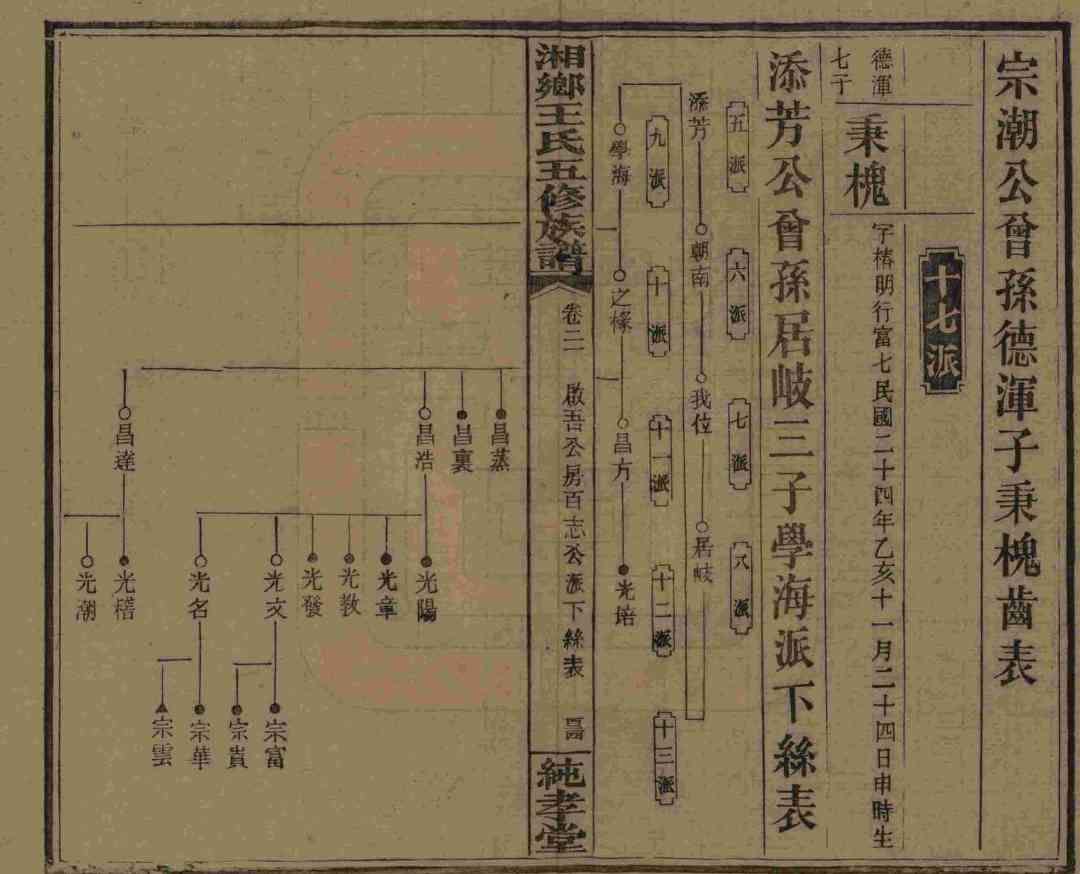 宗潮公曾孫德渾子秉槐齒表
十七派
德渾
七子
秉槐
字椿明行富七民國二十四年乙亥十一月二十四日申時生
添芳公曾孫居岐三子學海派下絲表
五派
六派
七派
八派
添芳
朝南
我位
居岐
九派
十派
十一派
十二派
十三派
學海
之椽
昌方
光培
湘鄉王氏五修族譜
卷二
啟吾公房百志公派下絲表
純孝堂
昌蒸
昌裏
昌浩
昌達
光陽
光章
光教
光發
光文
光名
光稽
光潮
宗富
宗貴
宗華
宗雲